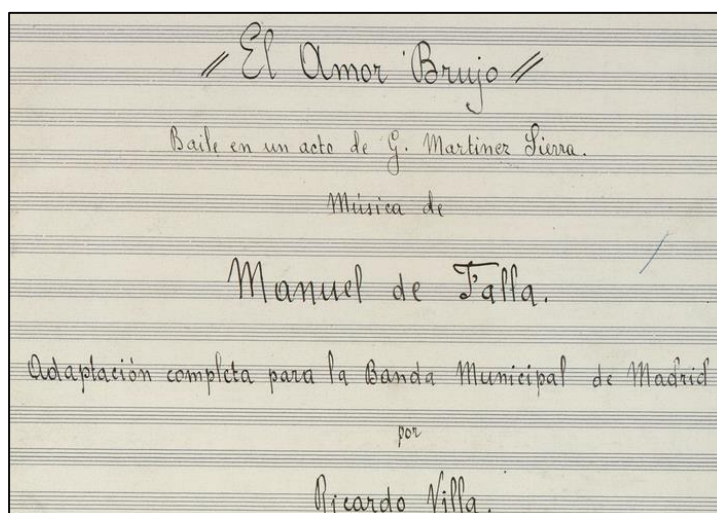 〃 El Amor Brujo 〃
Baile en un acto de G. Martinez Sierra.
Música de
Manuel de Falla.
Adaptación completa para la Banda Municipal de Madrid
por
Ricardo Villa.